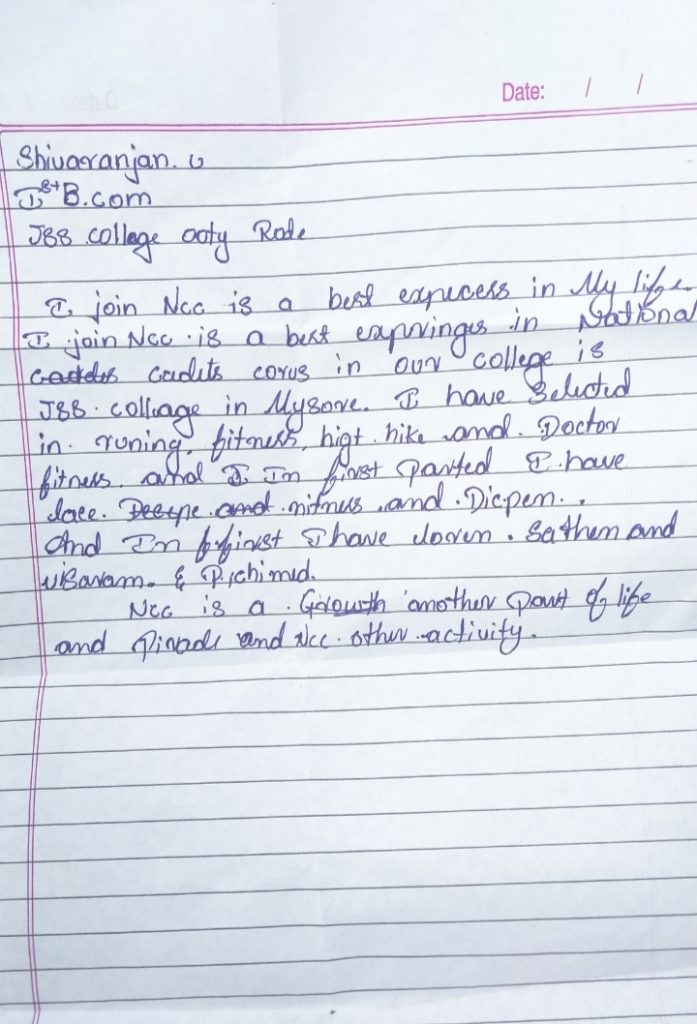 Date: / /
Shivaranjan. G
I st B.com
JSS college ooty Rode
I join Ncc is a best expecess in My life.
I join Ncc is a best expvringes in National
cadets corus in our college is
JSS. colleage in Mysore. I have Selected
in. runing, fitness, higt. hike and. Doctor
fitness. and I In first parted I have
lace. and. nitness. and. Dicpen..
And In first I have doven. Sathem and
visavam. & Pichimed.
Ncc is a. Growth another part of life
and Pirade and Ncc. other activity.